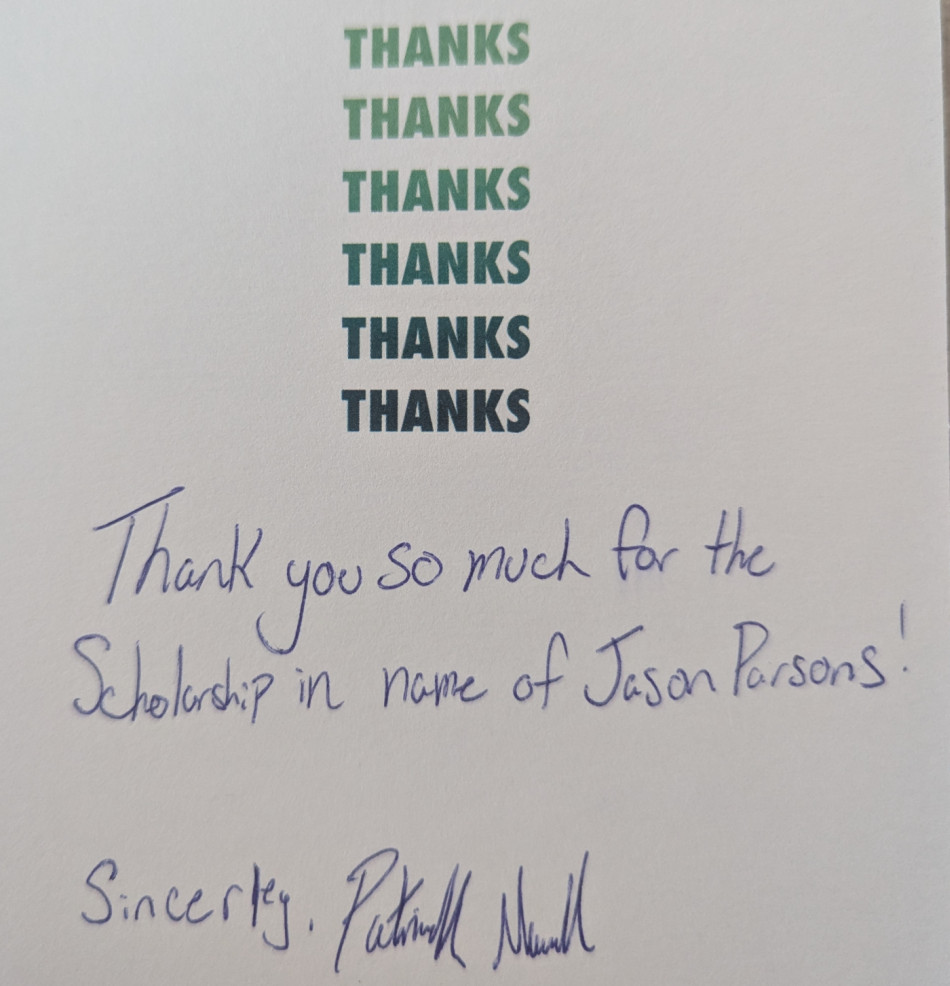 THANKS
THANKS
THANKS
THANKS
THANKS
THANKS
Thank you so much for the
Scholarship in name of Jason Parsons!
Sincerley. Patrick